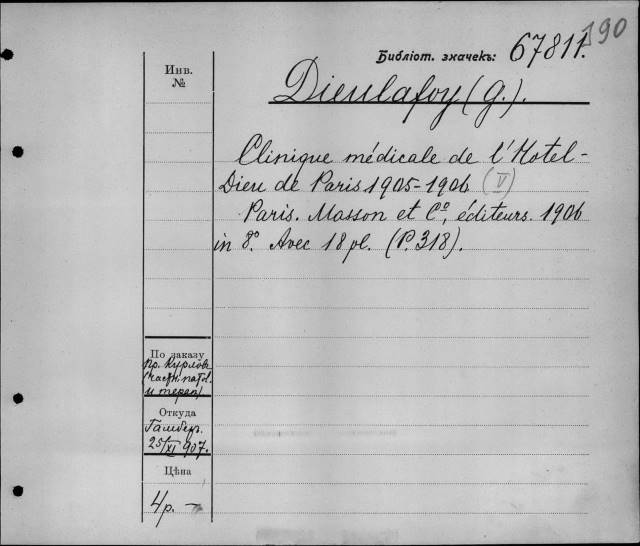 190
Библіот. значекъ: 67811.
Инв.
№
Dieulafoy (G.).
Clinique médicale de l'Hotel-
Dieu de Paris 1905-1906 (V)
Paris. Masson et Cº, éditeurs. 1906
in 8º. Avec 18 pl. (P. 318).
По заказу
Пр. Курлов
(частн. патол.
и терап)
Откуда
Гамбер.
25/XI 907.
Цѣна
4 р. -